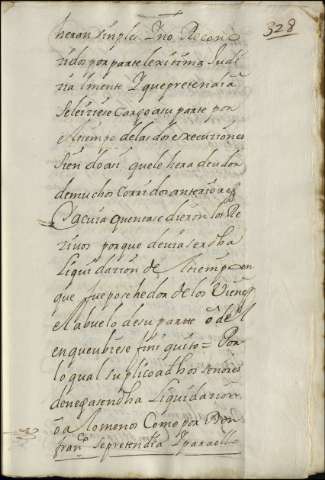 328
heran simples y no Recono
sidos por parte lexitima Judi
cialmente y que pretendia
se le hiziese Cargo a su parte por
el tiempo de las dos execuciones
siendo asi que le hera deudor
de muchos corridos anteriores
a cuia quenta se dieron los Re
civos porque devia ser dha
Liquidazion de el tiempo en
que fue posehedor de los Vienes
el abuelo de su parte o de el
en que ubiese finiquito = Por
lo qual suplico a dhos señores
denegasen dha Liquidazion
o a lo menos Como por Don
franco se pretendia y para ello